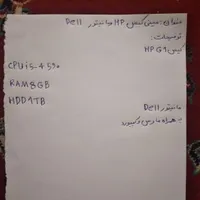 عنوان: مینی کیس HP و مانیتور Dell
توضیحات:
کیس HP G1
CPU i5-4590
RAM 8GB
HDD 1TB
مانیتور Dell
به همراه ماوس و کیبورد